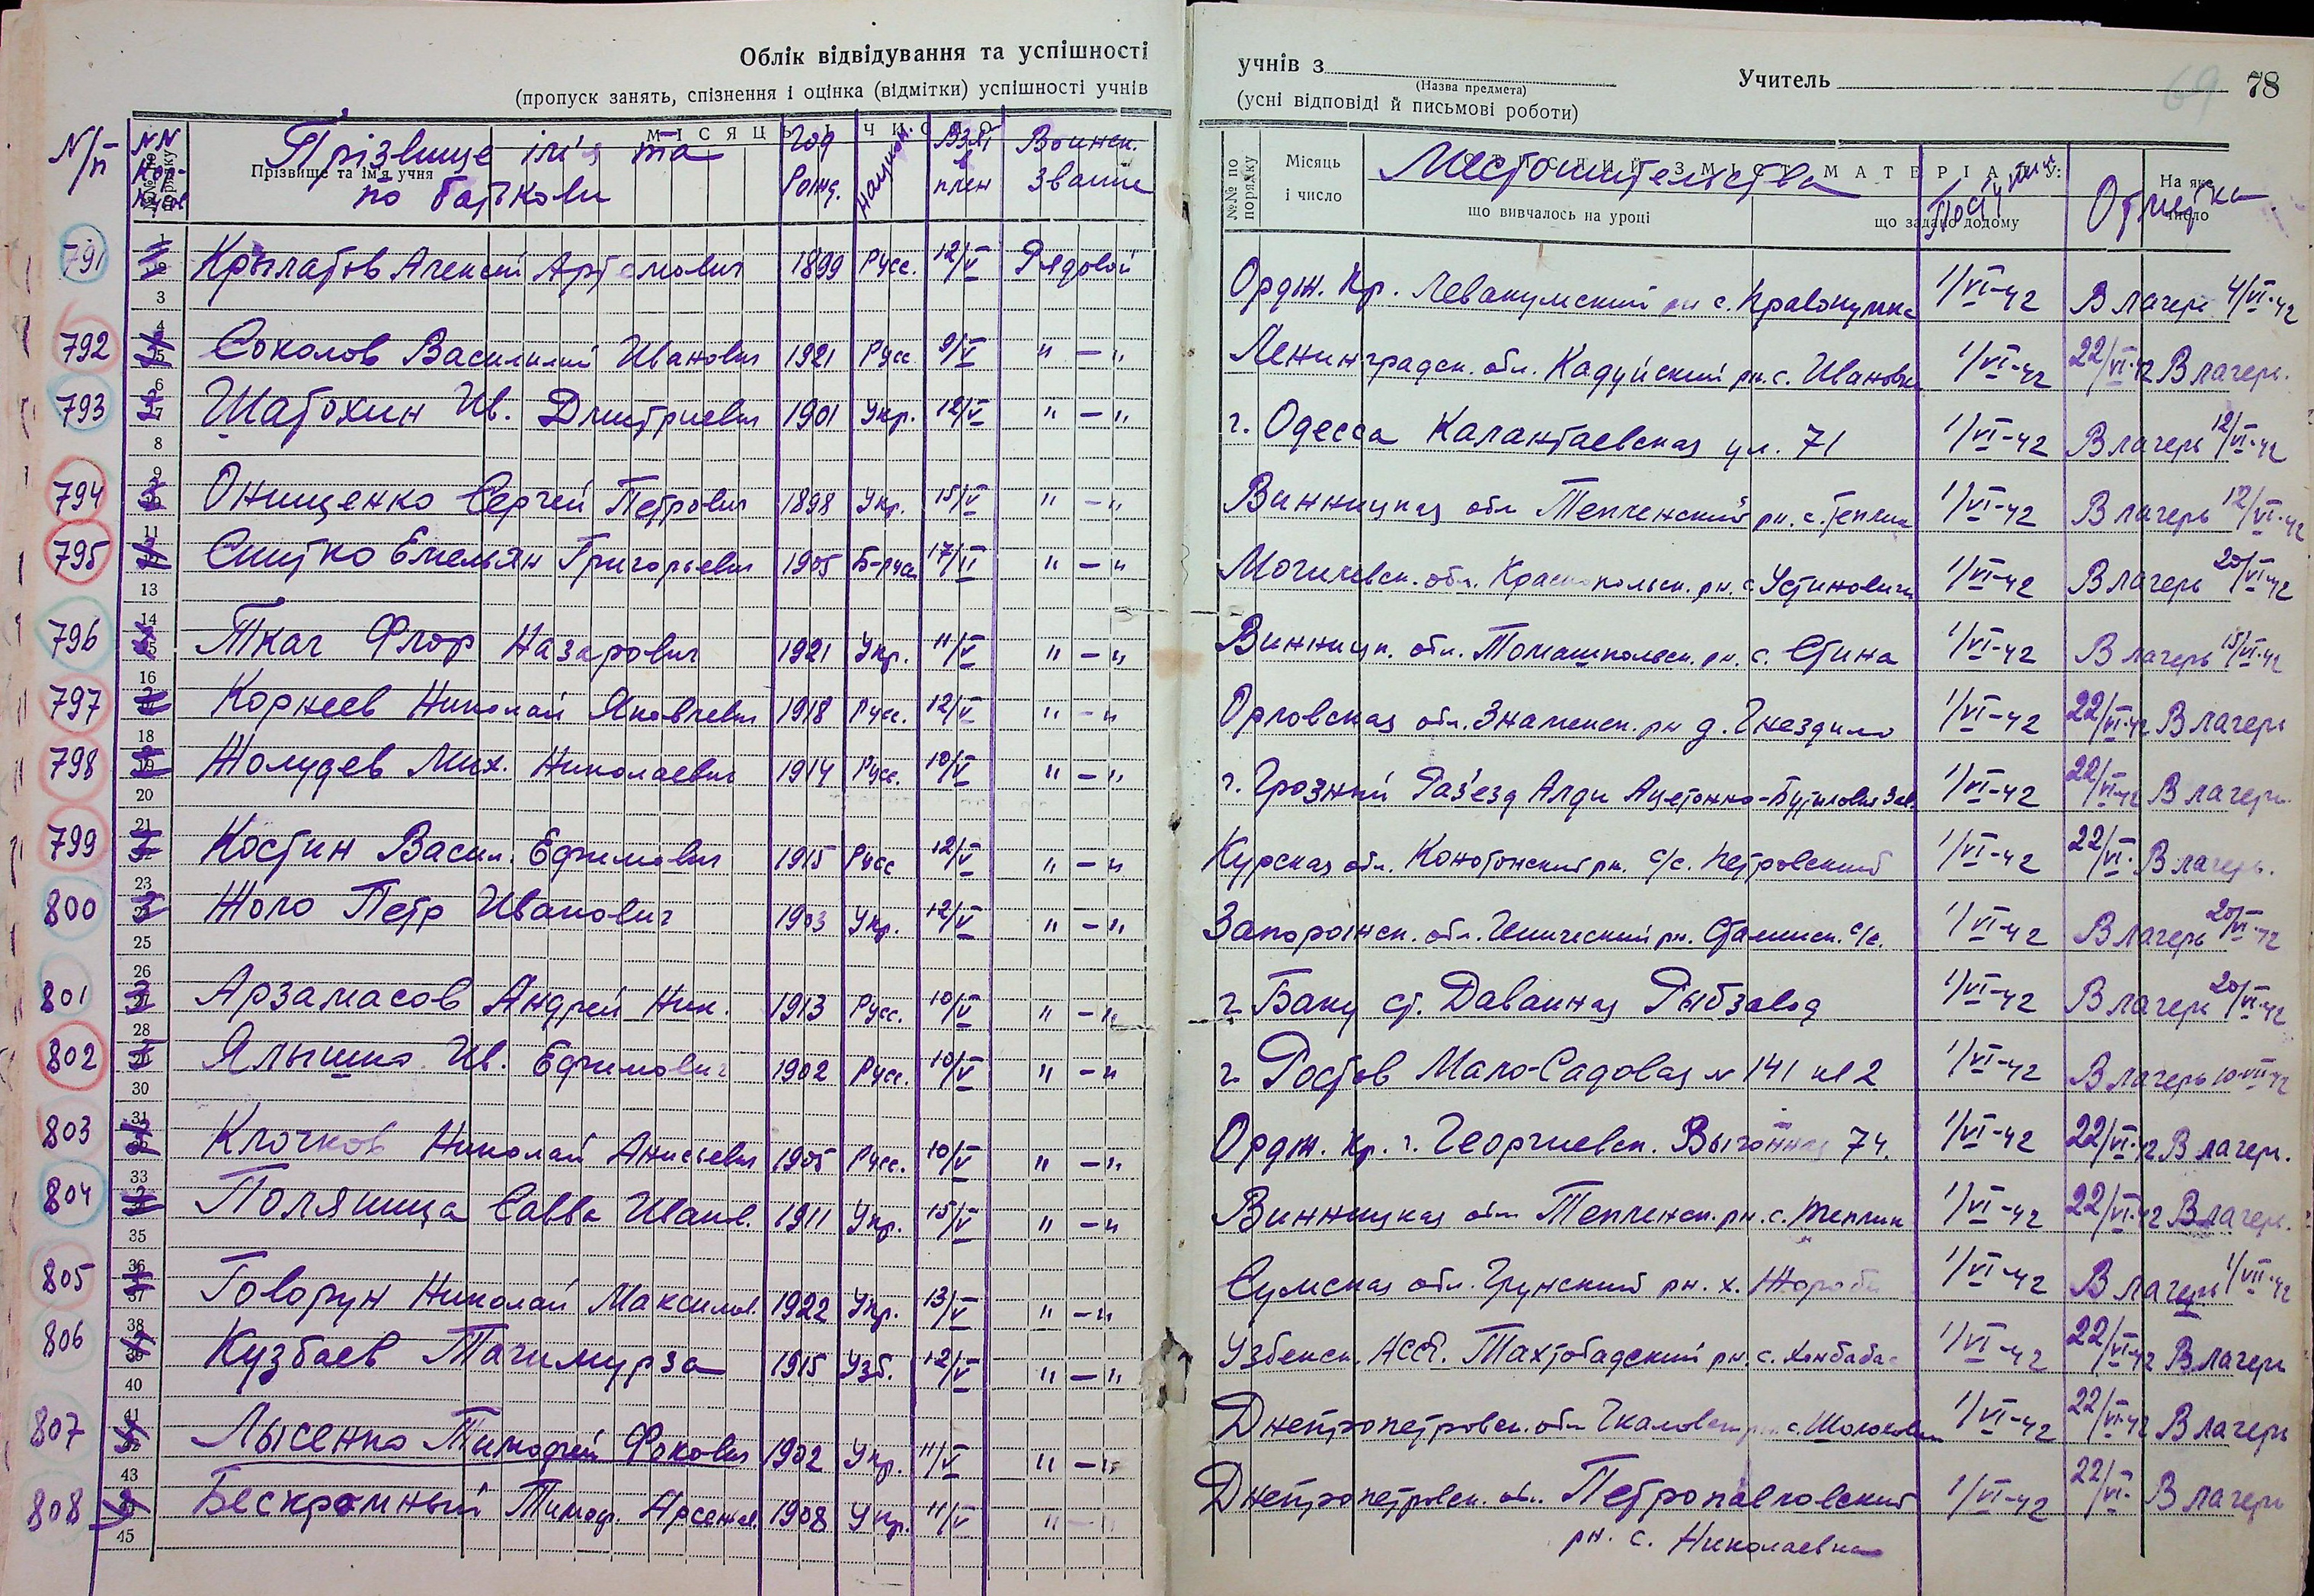 Облік відвідування та успішності
(пропуск занять, спізнення і оцінка (відмітки) успішності учнів
N/п NN Прізвище ім'я та по батькови Год рожд. национ. Взят в плен Воинск. звание
Прізвище та ім'я учня
МІСЯЦЬ І ЧИСЛО
учнів з Учитель 69 78
(Назва предмета)
(усні відповіді й письмові роботи)
№№ по порядку Місяць і число Местожительства Отметка.
що вивчалось на уроці що задано додому На яке число
791 Крылатов Алексей Артемович 1899 Русс. 12/V Рядовой Ордж. Кр. Левакумский рн с. Правокумка 1/VI-42 В лагерь 4/VI-42
792 Соколов Василилий Иванович 1921 Русс 9/V " — " Ленинградск. обл. Кадуйский рн. с. Ивановка 1/VI-42 22/VI-42 В лагерь.
793 Шатохин Ив. Дмитриевич 1901 Укр. 12/V " — " г. Одесса Калантаевская ул. 71 1/VI-42 В лагерь 12/VI-42
794 Онищенко Сергей Петрович 1898 Укр. 15/V " — " Винницкая обл Тепленский рн. с. Теплик 1/VI-42 В лагерь 12/VI-42
795 Снитко Емельян Григорьевич 1905 Б-русс 17/II " — " Могилевск. обл. Краснопольск. рн. с. Устиновичи 1/VI-42 В лагерь 20/VI-42
796 Ткач Флор Назарович 1921 Укр. 11/V " — " Винницк. обл. Томашпольск. рн. с. Стина 1/VI-42 В лагерь 15/VI-42
797 Корнеев Николай Яковлевич 1918 Русс. 12/V " — " Орловская обл. Знаменск. рн д. Гнездило 1/VI-42 22/VI-42 В лагерь
798 Жолудев Мих. Николаевич 1914 Русс. 10/V " — " г. Грозный Раз'езд Алды Ацетонно-Бутиловый Зав. 1/VI-42 22/VI-42 В лагерь.
799 Костин Васил. Ефимович 1915 Русс 12/V " — " Курская обл. рн. с/с. Петровский 1/VI-42 22/VI. В лагерь.
800 Жоло Петр Иванович 1903 Укр. 12/V " — " Запорожск. обл. Генический рн. Сталинск. с/с. 1/VI-42 В лагерь 20/VI-42
801 Арзамасов Андрей Ник. 1913 Русс. 10/V " — " г. Баку ст. Рыбзавод 1/VI-42 В лагерь 20/VI-42
802 Ялышко Ив. Ефимович 1902 Русс. 10/V " — " г. Ростов Мало-Садовая № 141 кв 2 1/VI-42 В лагерь 10-VII-42
803 Клочков Николай Анисьевич 1905 Русс. 10/V " — " Ордж. Кр. г. Георгиевск. Выгонная 74. 1/VI-42 22/VI-42 В лагерь.
804 Поляница Савва Иванов. 1911 Укр. 15/V " — " Винницкая обл Тепленск. рн. с. Теплик 1/VI-42 22/VI-42 В лагерь.
805 Говорун Николай Максимов. 1922 Укр. 13/V " — " Сумская обл. Грунский рн. х. 1/VI-42 В лагерь 1/VII-42
806 Кузбаев Тагимурза 1915 Узб. 12/V " — " Узбекск. АССР. Тахтобадский рн. с. 1/VI-42 22/VI-42 В лагерь
807 Лысенко Тимофей Фокович 1902 Укр. 11/V " — " Днепропетровск. обл Чкаловск с. 1/VI-42 22/VI-42 В лагерь
808 Бескромный Тимоф. Арсенов. 1908 Укр. 11/V " — " Днепропетровск. обл. Петропавловский 1/VI-42 22/VI- В лагерь
рн. с. Николаевка